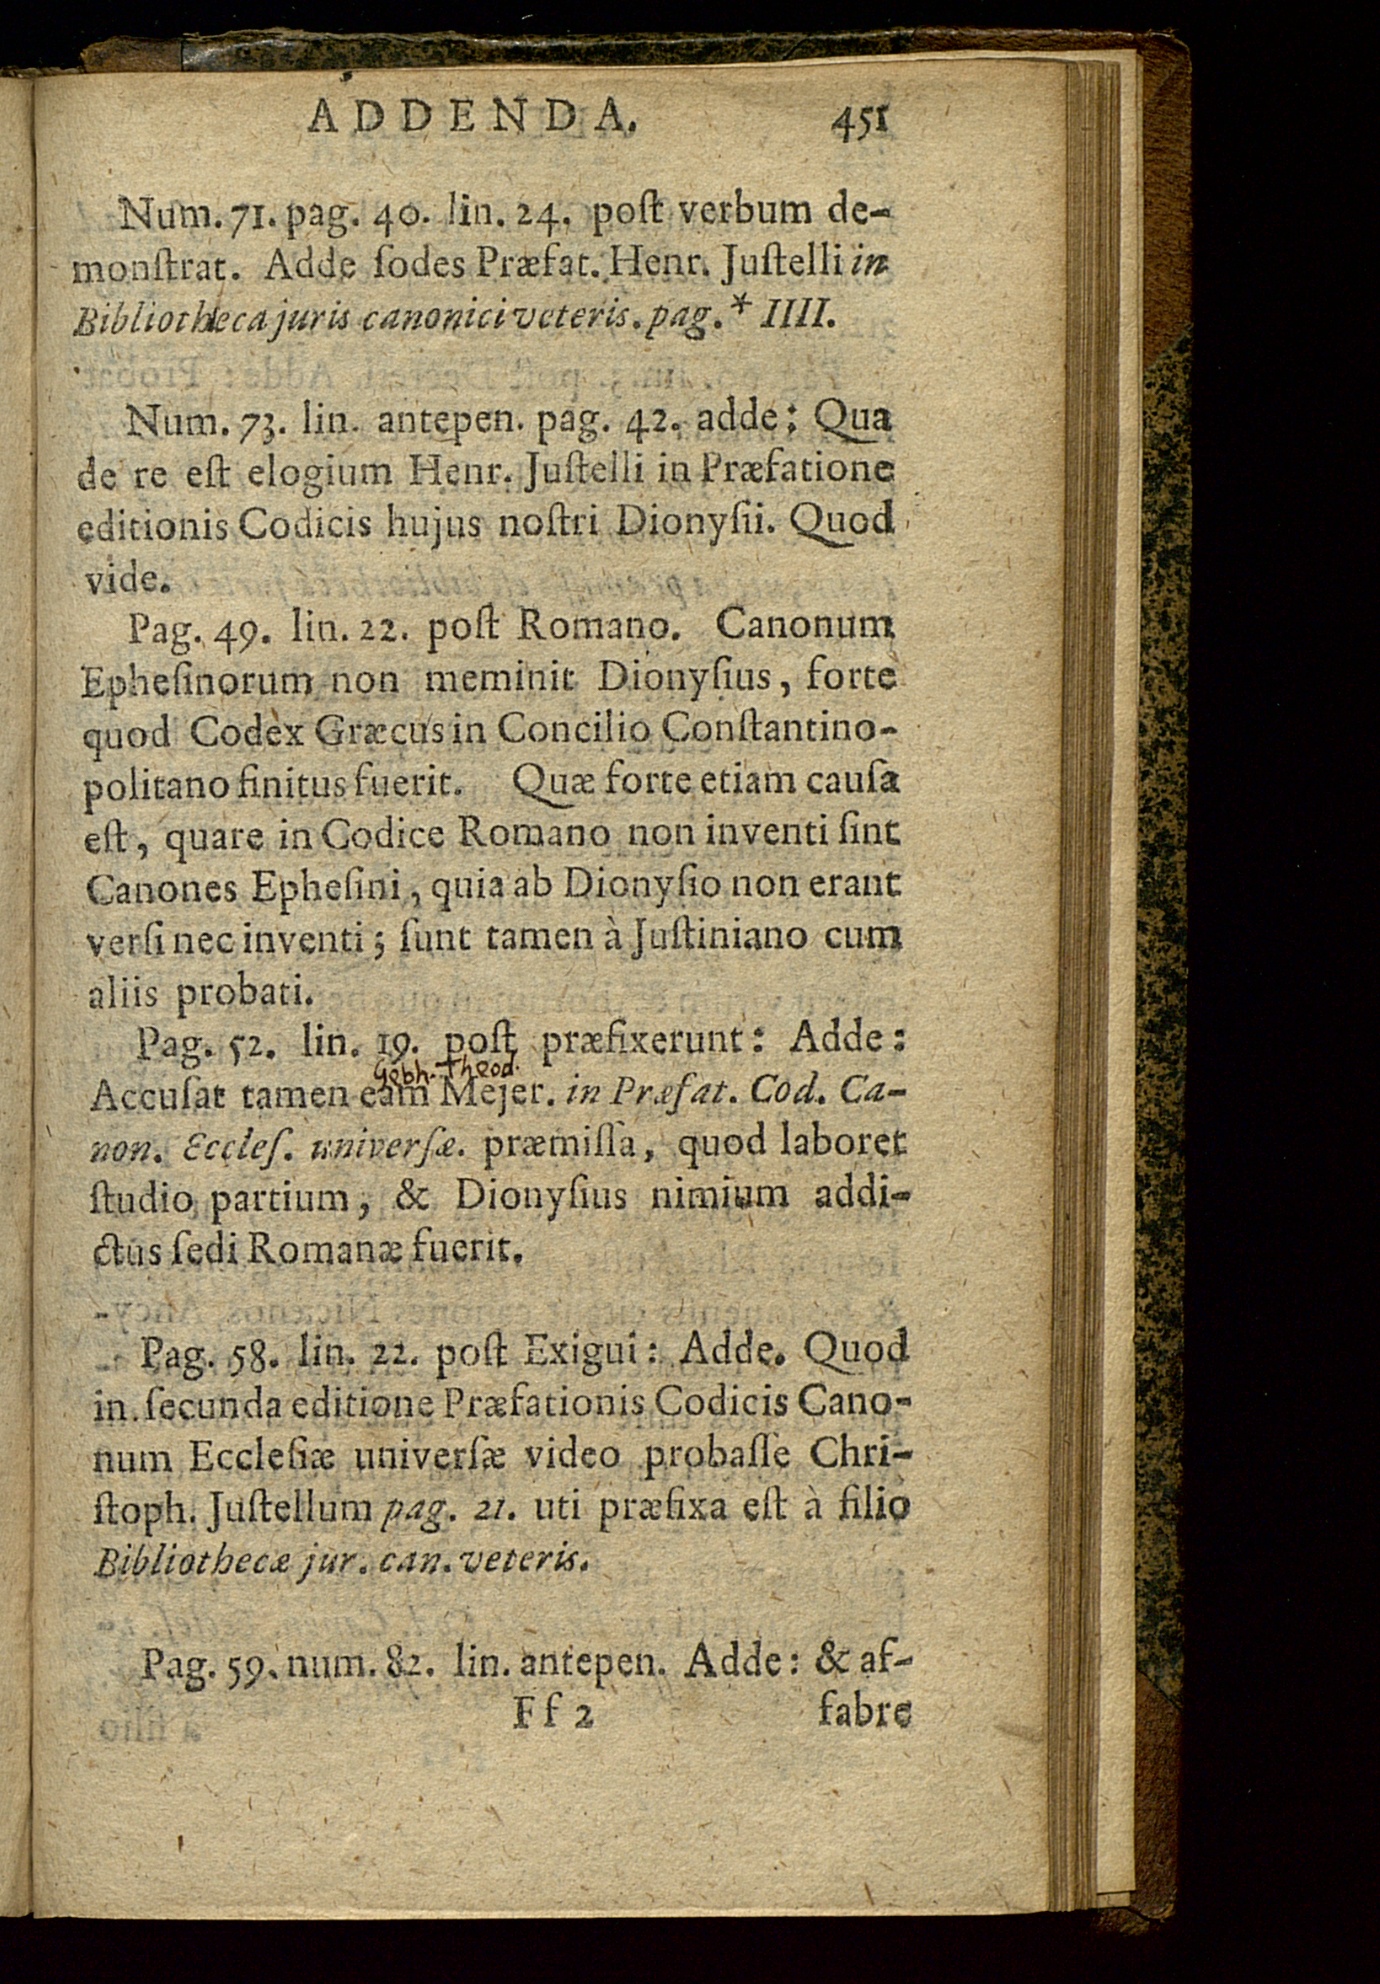 ADDENDA. 451
Num. 71. pag. 40. lin. 24. poſt verbum de-
monſtrat. Adde ſodes Præfat. Henr. Juſtelli in
Bibliotheca juris canonici veteris. pag. * IIII.
Num. 73. lin. antepen. pag. 42. adde: Qua
de re eſt elogium Henr. Juſtelli in Præfatione
editionis Codicis hujus noſtri Dionyſii. Quod
vide.
Pag. 49. lin. 22. poſt Romano. Canonum
Epheſinorum non meminit Dionyſius, forte
quod Codex Græcus in Concilio Conſtantino-
politano finitus fuerit. Quæ forte etiam cauſa
eſt, quare in Codice Romano non inventi ſint
Canones Epheſini, quia ab Dionyſio non erant
verſi nec inventi; ſunt tamen à Juſtiniano cum
aliis probati.
Pag. 52. lin. 19. poſt præfixerunt: Adde:
Gebh. Theod.
Accuſat tamen eam Mejer. in Præfat. Cod. Ca-
non. Eccleſ. univerſæ. præmiſſa, quod laboret
ſtudio partium, & Dionyſius nimium addi-
ctus ſedi Romanæ fuerit.
Pag. 58. lin. 22. poſt Exigui: Adde. Quod
in ſecunda editione Præfationis Codicis Cano-
num Eccleſiæ univerſæ video probaſſe Chri-
ſtoph. Juſtellum pag. 21. uti præfixa eſt à filio
Bibliothecæ jur. can. veteris.
Pag. 59. num. 82. lin. antepen. Adde: & af-
Ff 2 fabre